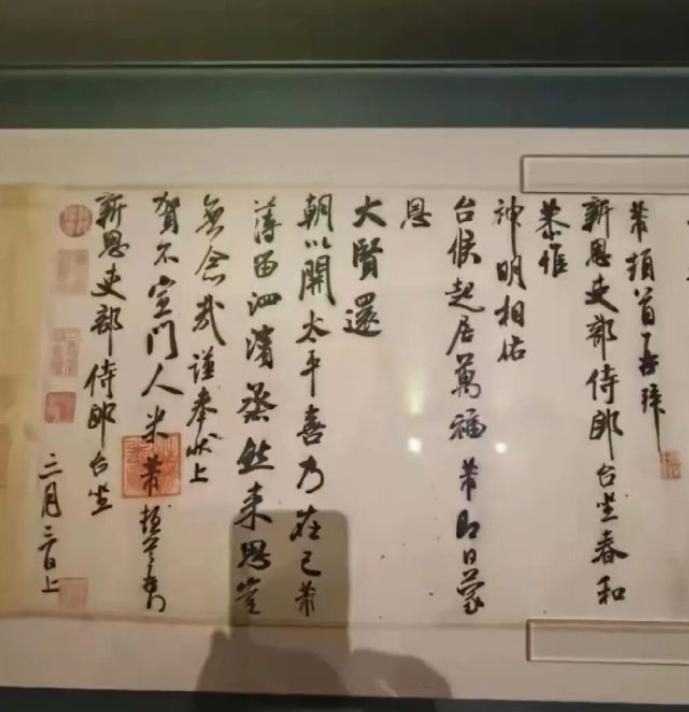 芾頓首再拜
新恩吏部侍郎台坐春和
恭惟
神明相佑
台候起居萬福芾即日蒙
恩
大賢還
朝以開太平喜乃在己芾
薄留泗濱蒸然來思豈
無念哉謹奉狀上
賀不宣門人米芾頓首再拜
新恩吏部侍郎台坐
三月三日上